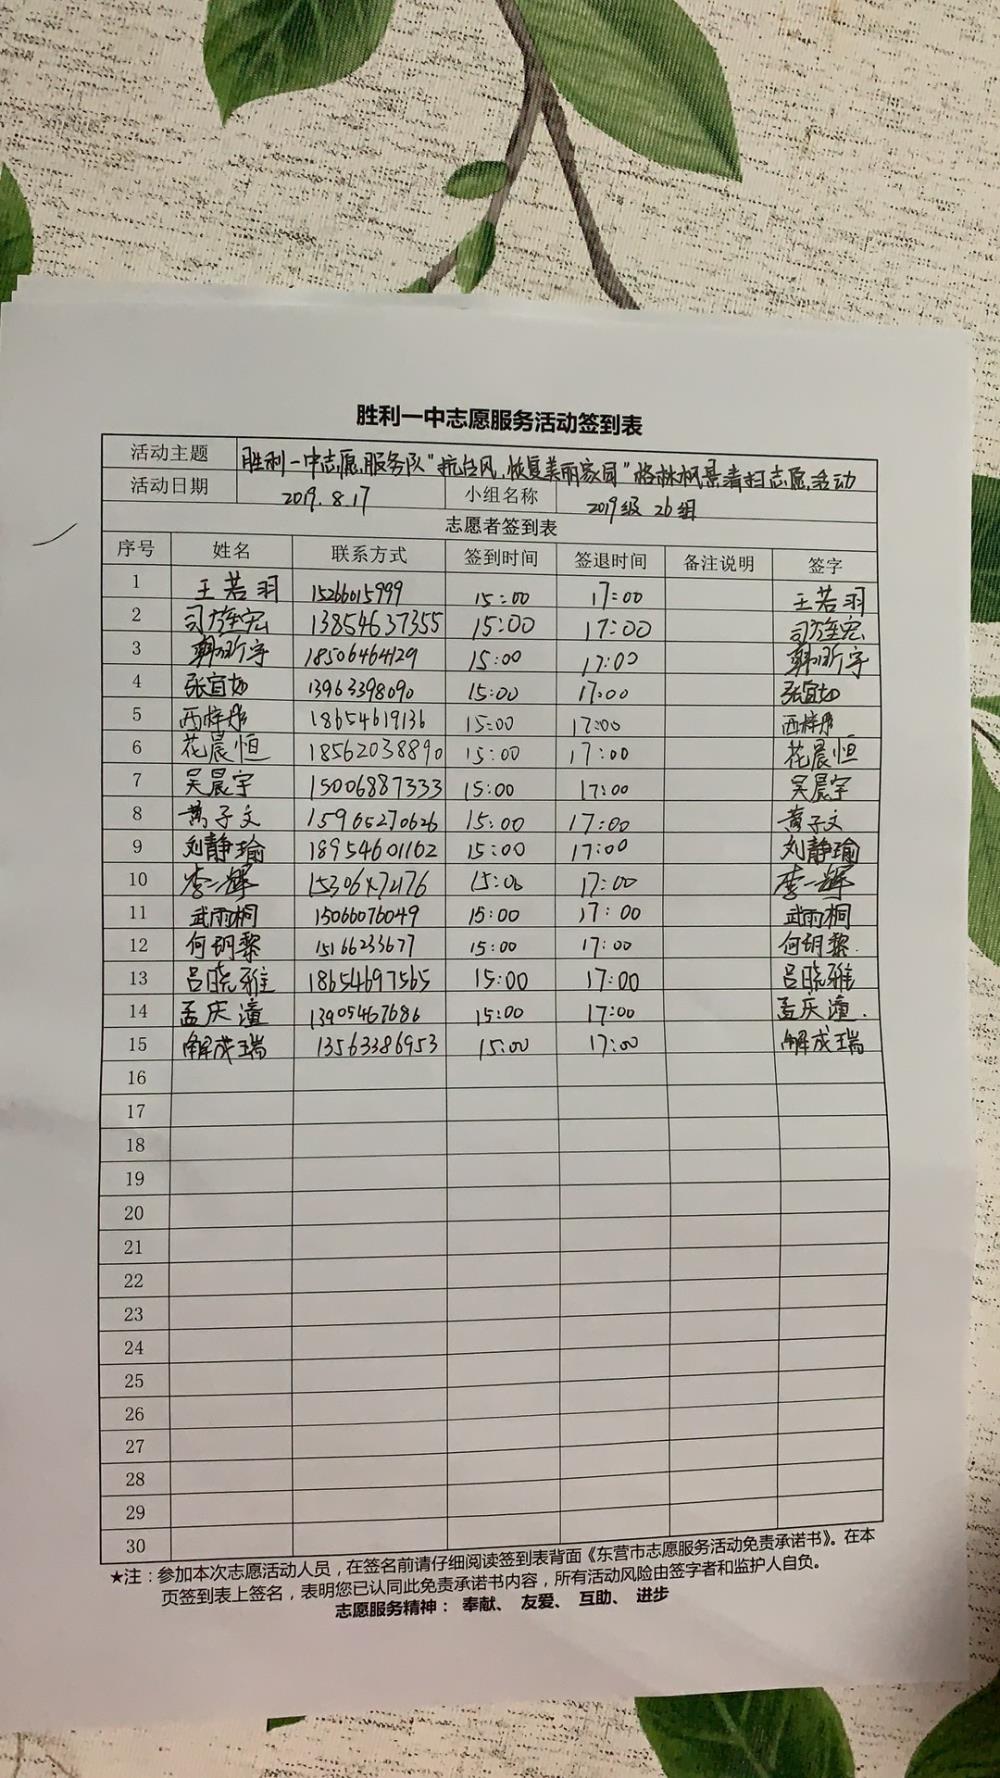 胜利一中志愿服务活动签到表
活动主题 胜利一中志愿服务队“抗台风,恢复美丽家园”格林枫景清扫志愿活动
活动日期 2019.8.17 小组名称 2019级 26组
志愿者签到表
序号 姓名 联系方式 签到时间 签退时间 备注说明 签字
1 王若羽 15266015999 15:00 17:00 王若羽
2 13854637355 15:00 17:00
3 韩昕宇 18506464129 15:00 17:00 韩昕宇
4 张宜如 13963398090 15:00 17:00 张宜如
5 西梓彤 18654619136 15:00 17:00 西梓彤
6 花晨恒 18562038890 15:00 17:00 花晨恒
7 吴晨宇 15006887333 15:00 17:00 吴晨宇
8 黄子文 15965270626 15:00 17:00 黄子文
9 刘静瑜 18954601162 15:00 17:00 刘静瑜
10 李一辉 15:00 17:00 李一辉
11 武雨桐 15066076049 15:00 17:00 武雨桐
12 何玥黎 15166233677 15:00 17:00 何玥黎.
13 吕晓雅 18654697565 15:00 17:00 吕晓雅
14 孟庆潼 13905467686 15:00 17:00 孟庆潼.
15 解成瑞 13563386953 15:00 17:00 解成瑞
16
17
18
19
20
21
22
23
24
25
26
27
28
29
30
★注:参加本次志愿活动人员,在签名前请仔细阅读签到表背面《东营市志愿服务活动免责承诺书》。在本
页签到表上签名,表明您已认同此免责承诺书内容,所有活动风险由签字者和监护人自负。
志愿服务精神: 奉献、 友爱、 互助、 进步